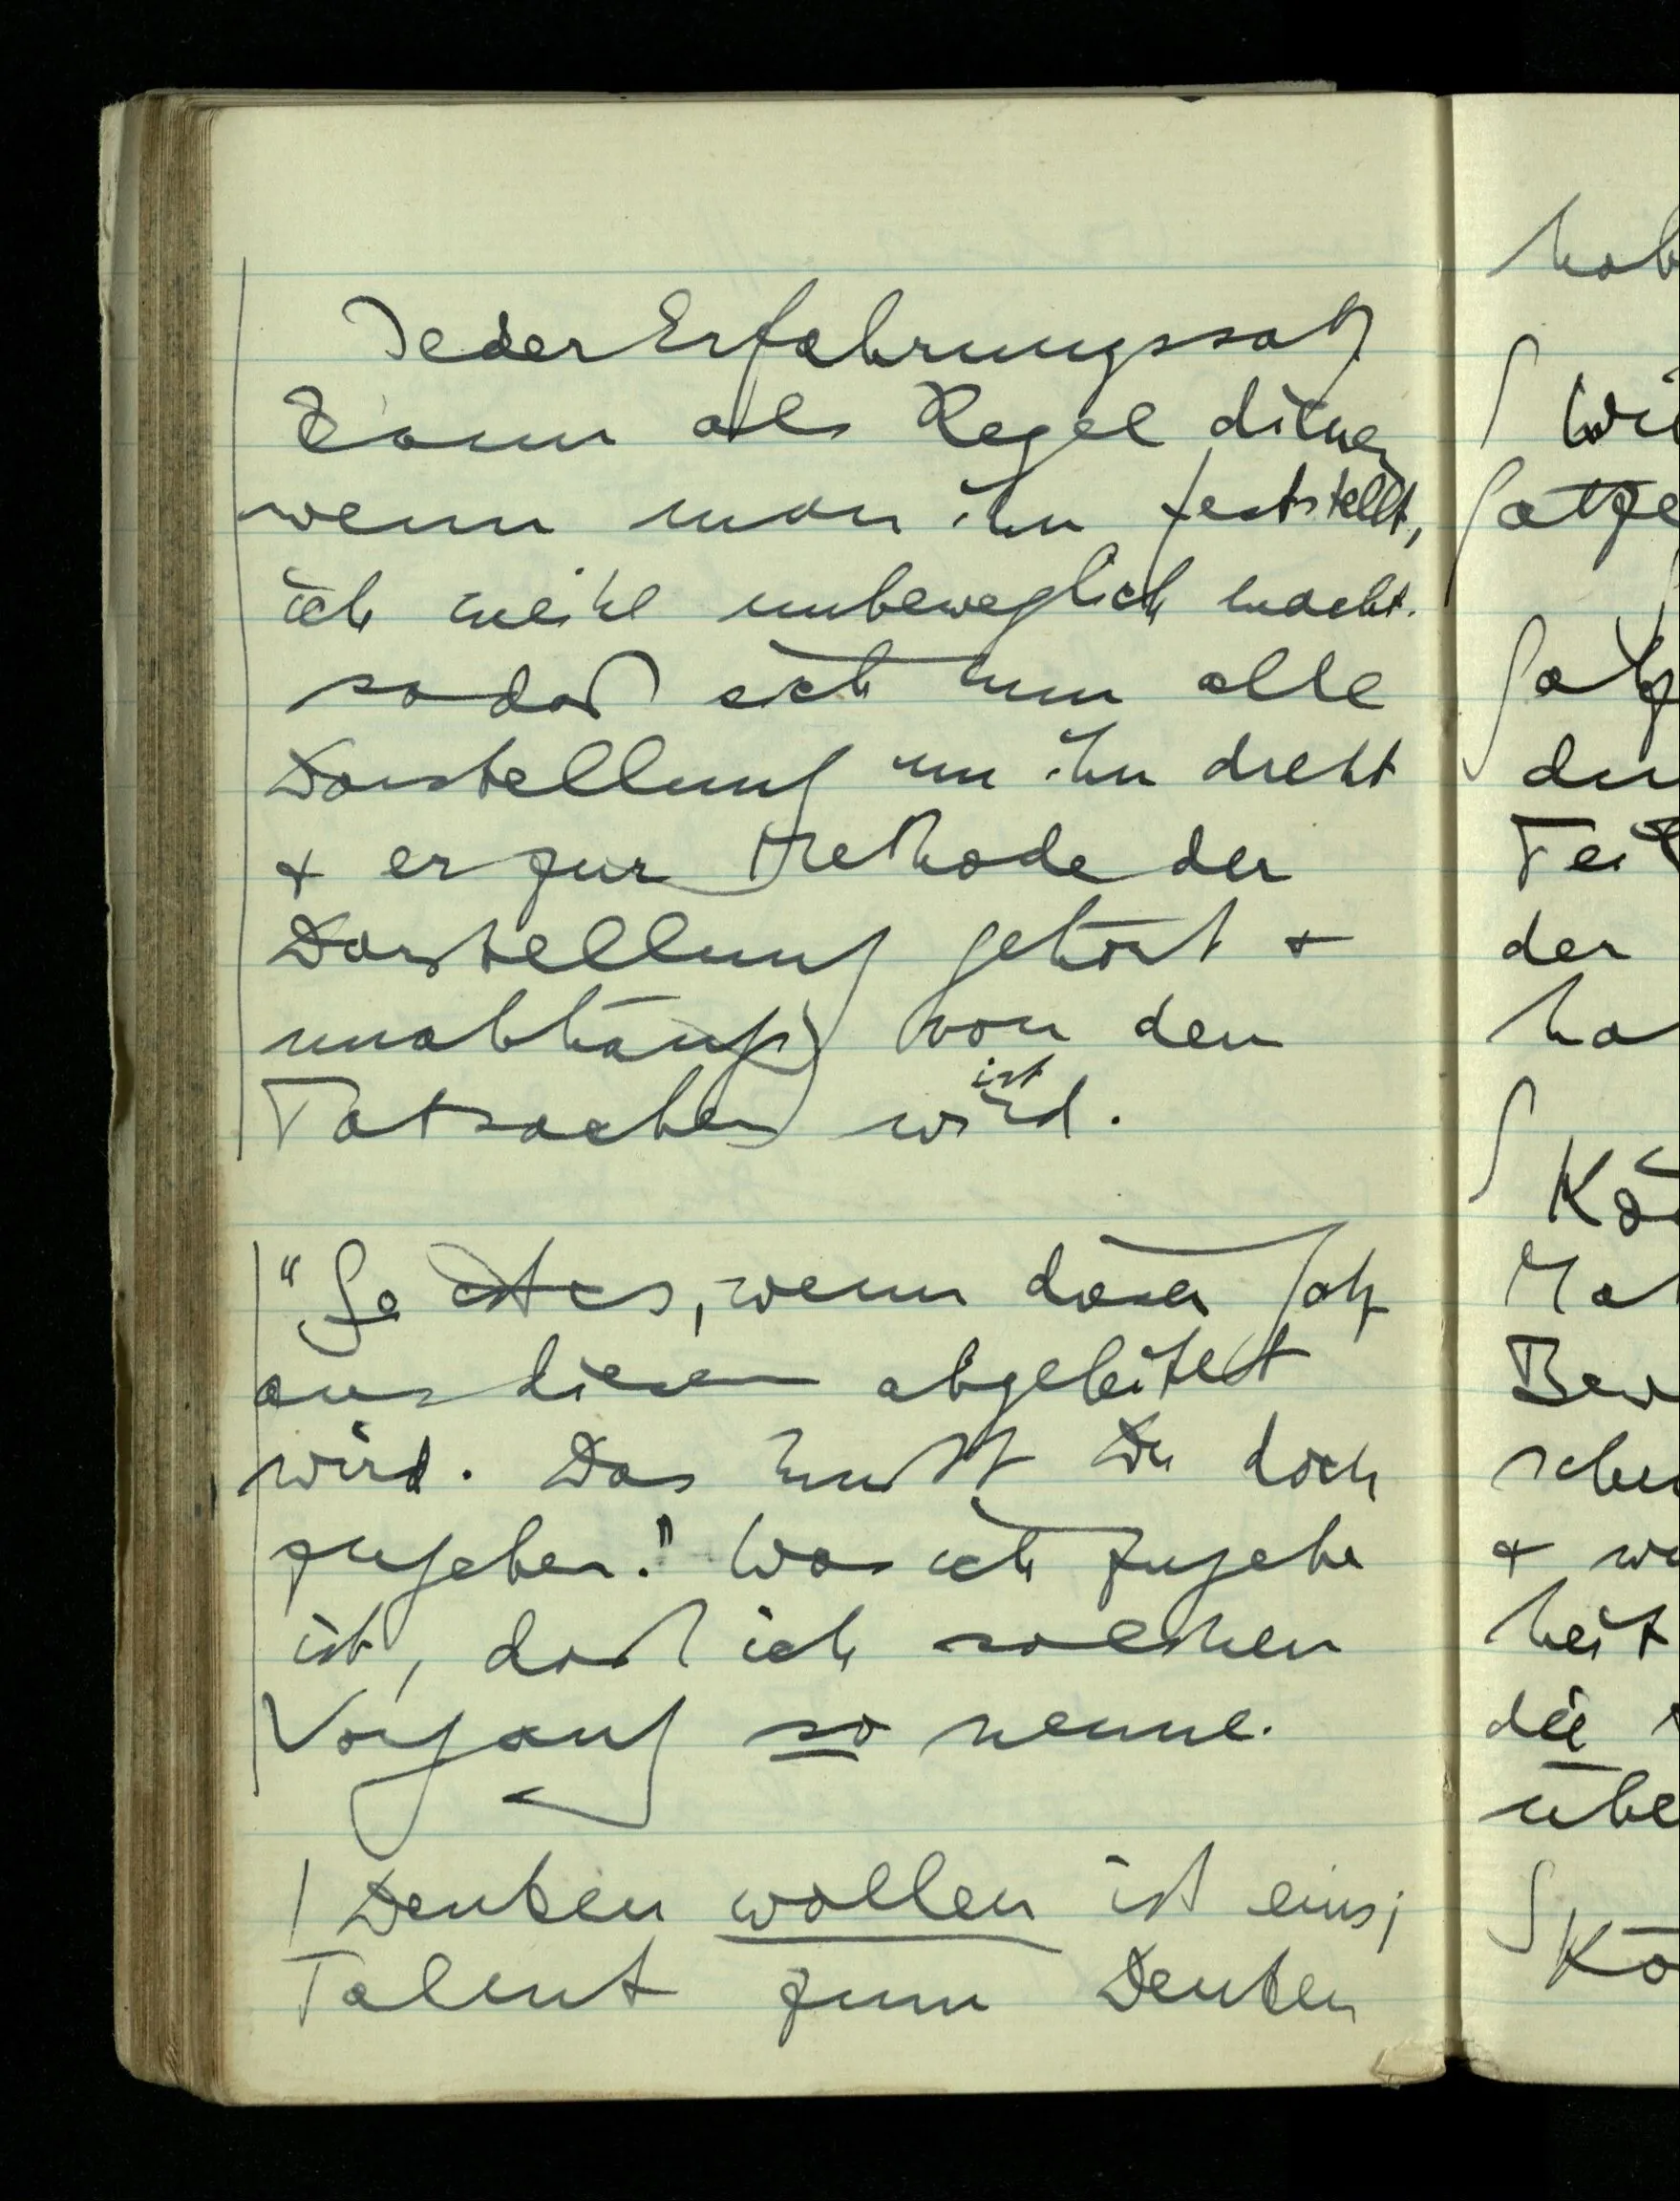 Jeder Erfahrungssatz
kann als Regel dienen
wenn man ihn feststellt,
ich meine unbeweglich macht.
sodaß sich nun alle
Darstellung um ihn dreht
& er zur Methode der
Darstellung gehört &
unabhängig von den
ist
Tatsachen wird.
"So ist es, wenn dieser Satz
aus diesem abgeleitet
wird. Das mußt Du doch
zugeben." Was ich zugebe
ist, daß ich solchen
Vorgang so nenne.
| Denken wollen ist eins;
Talent zum Denken
der
die